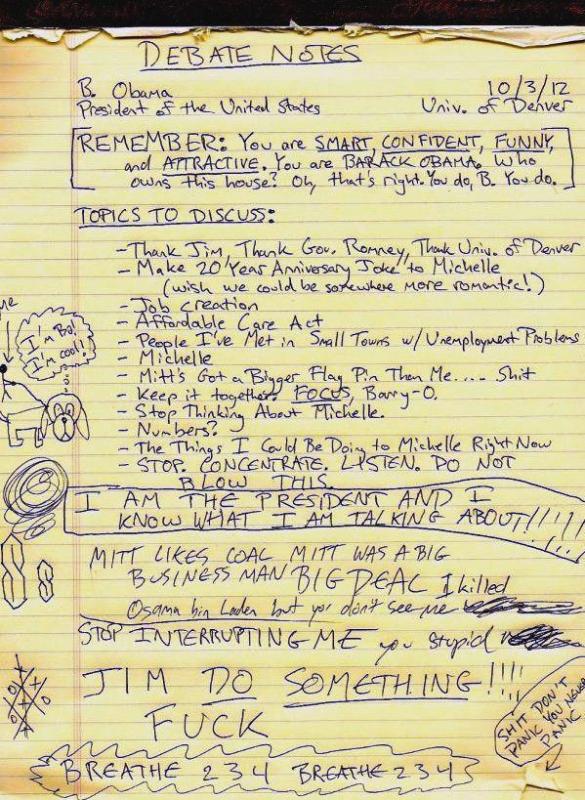 DEBATE NOTES
B. Obama 10/3/12
President of the United States Univ. of Denver
REMEMBER: You are SMART, CONFIDENT, FUNNY,
and ATTRACTIVE. You are BARACK OBAMA. Who
owns this house? Oh, that's right. You do, B. You do.
TOPICS TO DISCUSS:
- Thank Jim, Thank Gov. Romney, Thank Univ. of Denver
- Make 20 Year Anniversary Joke to Michelle
(wish we could be somewhere more romantic!)
- Job creation
- Affordable Care Act
- People I've Met in Small Towns w/ Unemployment Problems
- Michelle
- Mitt's Got a Bigger Flag Pin Than Me.... Shit
- Keep it together. FOCUS, Barry-O.
- Stop Thinking About Michelle.
- Numbers?
- The Things I Could Be Doing to Michelle Right Now
- STOP. CONCENTRATE. LISTEN. DO NOT
BLOW THIS.
me
I'm Bo!
I'm cool!
I AM THE PRESIDENT AND I
KNOW WHAT I AM TALKING ABOUT!!!!!
MITT LIKES COAL MITT WAS A BIG
BUSINESS MAN BIG DEAL I killed
Osama bin Laden but you don't see me
STOP INTERRUPTING ME you stupid
JIM DO SOMETHING!!!!
FUCK
SHIT DON'T
PANIC YOU NEVER
PANIC
BREATHE 2 3 4 BREATHE 2 3 4